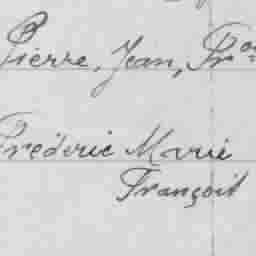 Pierre, Jean, Fr
Fréderic Marie
Françoit